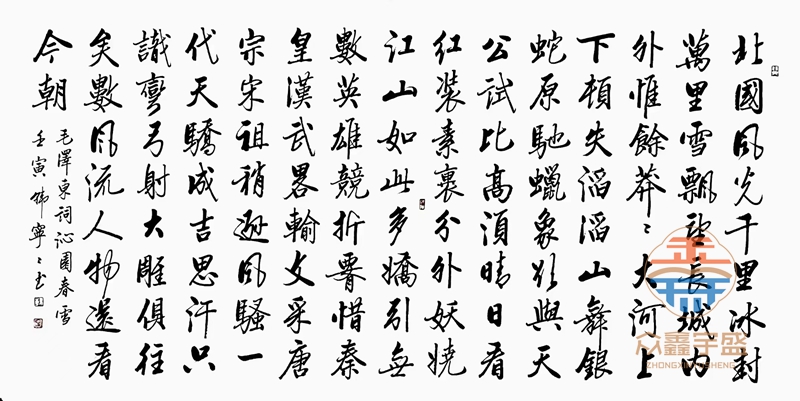 北國风光千里冰封
萬里雪飄望長城内
外惟餘莽〻大河上
下頓失滔滔山舞銀
蛇原馳蠟象欲與天
公試比高須晴日看
紅装素裹分外妖嬈
江山如此多嬌引無
數英雄競折腰惜秦
皇漢武畧輸文采唐
宗宋祖稍遜风騷一
代天驕成吉思汗只
識彎弓射大雕俱往
矣數风流人物還看
今朝
毛澤東詞沁園春雪
壬寅
众鑫宇盛
ZHONGXINYUSHENG